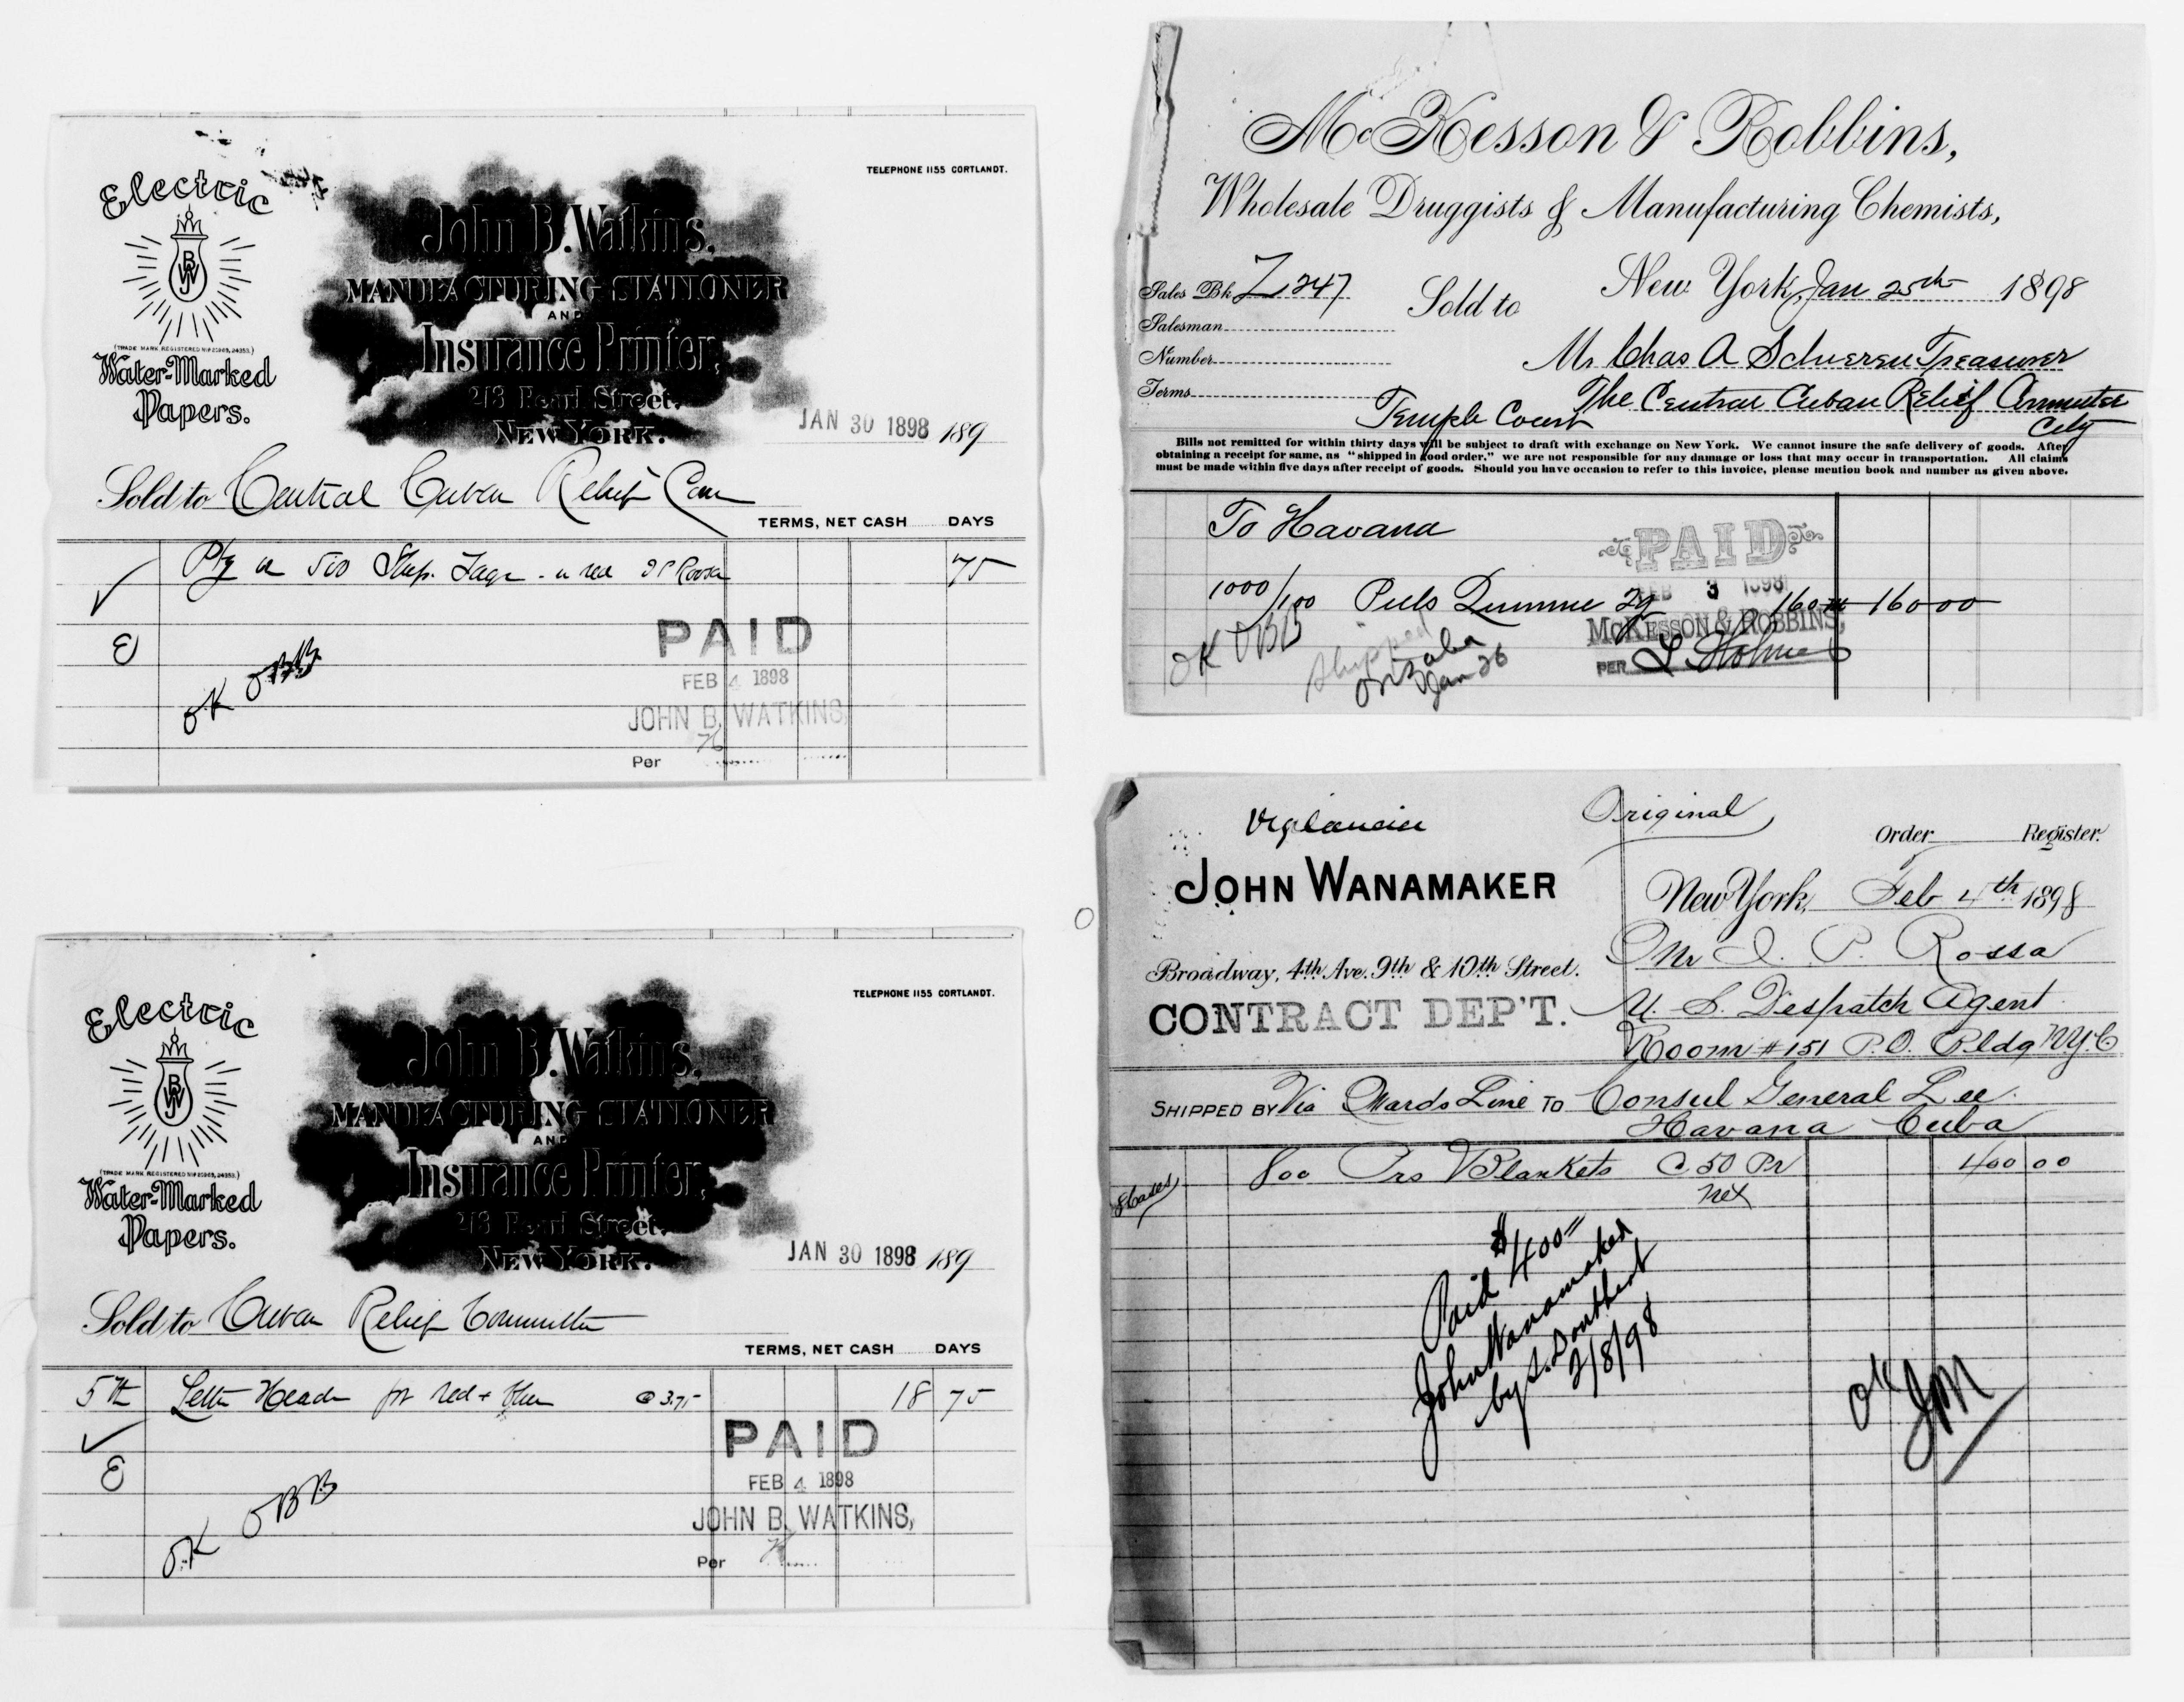 Electric
BWJ
(TRADE MARK REGISTERED
Water-Marked
Papers.
TELEPHONE 1155 CORTLANDT.
John B. Watkins,
MANUFACTURING STATIONER
AND
Insurance Printer,
213 Pearl Street,
NEW YORK.
JAN 30 1898 189
Sold to Central Cuban Relief Com
TERMS, NET CASH DAYS
500 Ship. Tags - in red 75
E
OK OBB
PAID
FEB 4 1898
JOHN B. WATKINS,
Per
Electric
BWJ
(TRADE MARK REGISTERED
Water-Marked
Papers.
TELEPHONE 1155 CORTLANDT.
John B. Watkins,
MANUFACTURING STATIONER
AND
Insurance Printer,
213 Pearl Street,
NEW YORK.
JAN 30 1898 189
Sold to Cuban Relief Committee
TERMS, NET CASH DAYS
5 M Letter Heads red + blue @ 3.75 18 75
E
OK OBB
PAID
FEB 4 1898
JOHN B. WATKINS,
Per
McKesson & Robbins,
Wholesale Druggists & Manufacturing Chemists,
Sales Bk Z 247 Sold to New York, Jan 25th 1898
Salesman
Number Mr Chas A Schieren Treasurer
Terms The Central Cuban Relief Committee
Temple Court City
Bills not remitted for within thirty days will be subject to draft with exchange on New York. We cannot insure the safe delivery of goods. After
obtaining a receipt for same, as "shipped in good order." we are not responsible for any damage or loss that may occur in transportation. All claims
must be made within five days after receipt of goods. Should you have occasion to refer to this invoice, please mention book and number as given above.
To Havana
1000/100 Pills Quinine 2g 160 160 00
OK OBB
Shipped
Orizaba
Jan 26
PAID
FEB 3 1898
McKESSON & ROBBINS,
PER
Vigilancia Original
Order Register.
JOHN WANAMAKER
New York, Feb 4th 1898
Broadway, 4th Ave. 9th & 10th Street. Mr I. P. Rossa
CONTRACT DEP'T. U. S. Despatch Agent
Room #151 P.O. Bldg N.Y.C
SHIPPED BY Via Wards Line TO Consul General Lee
Havana Cuba
8 bales 800 Prs Blankets @ 50 Pr 400 00
net
Paid $400=
John Wanamaker
by
2/8/98
OK JM